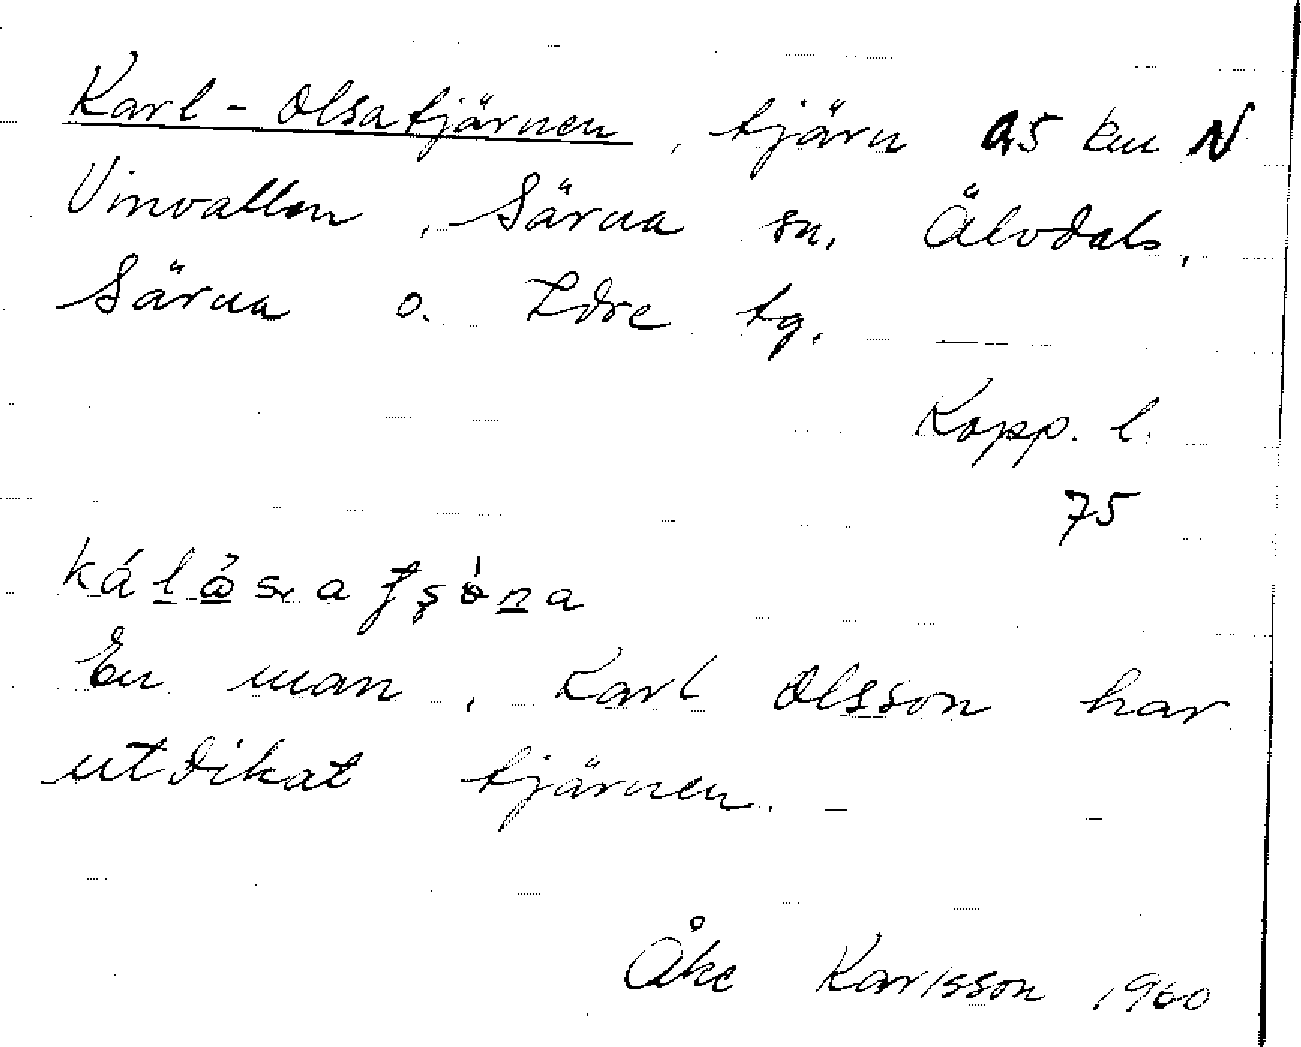 Karl-Olsatjärnen, tjärn 0,5 km N
Vinvallen, Särna sn, Älvdals,
Särna o. Idre tg.
Kopp. l.
75
En man, Karl Olsson har
utdikat tjärnen. –
Åke Karlsson 1960